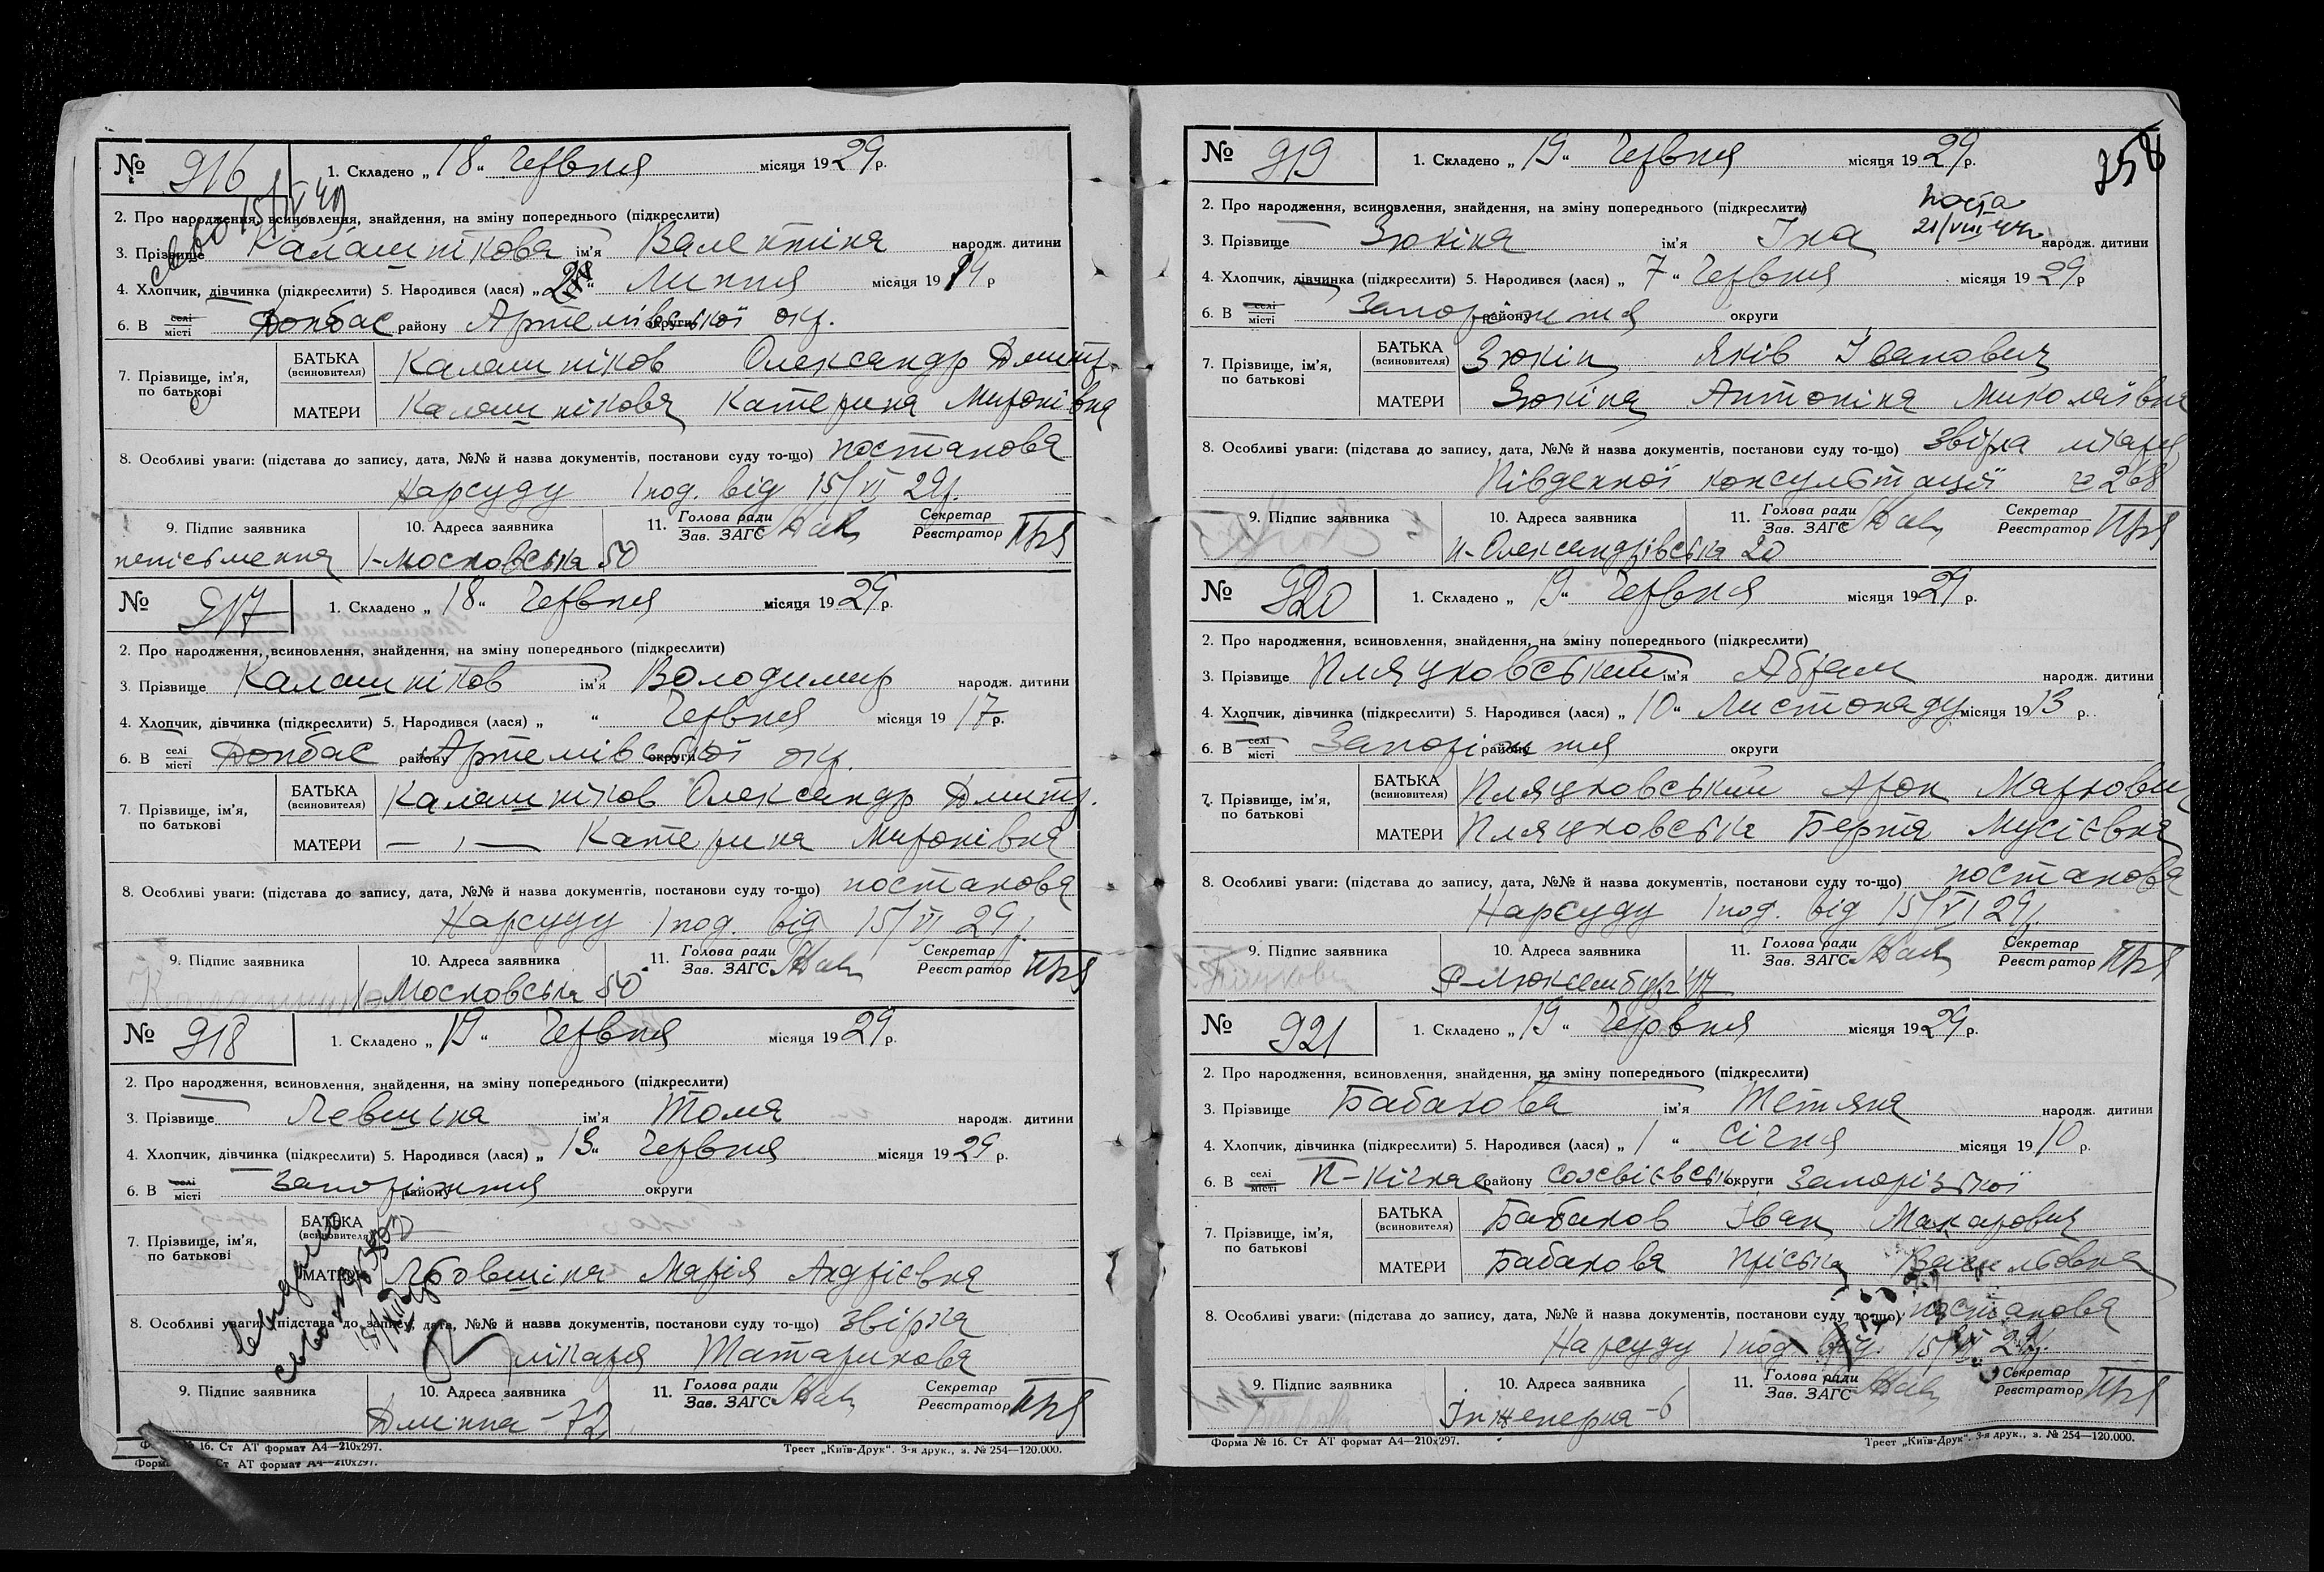 № 916 1. Складено „ 18 “ Червня місяця 1929 р.
2. Про народження, всиновлення, знайдення, на зміну попереднього (підкреслити)
3. Прізвище Калашнікова ім'я Валентіна народж. дитини
4. Хлопчик, дівчинка (підкреслити) 5. Народився (лася) „ “ Липня місяця 1914 р
6. В селі місті Донбас району Артемівської округи окр.
7. Прізвище, ім'я, по батькові БАТЬКА (всиновителя) Калашніков Олександр Дмитр.
МАТЕРИ Калашнікова Катерина Миронівна
8. Особливі уваги: (підстава до запису, дата, №№ й назва документів, постанови суду то-що) постанова
Нарсуду 1 под. від 15/VI 29р.
9. Підпис заявника 10. Адреса заявника 11. Голова ради Зав. ЗАГС Секретар Реєстратор
непісьменна 1-Московська 50
№ 917 1. Складено „ 18 “ Червня місяця 1929 р.
2. Про народження, всиновлення, знайдення, на зміну попереднього (підкреслити)
3. Прізвище Калашніков ім'я Володимир народж. дитини
4. Хлопчик, дівчинка (підкреслити) 5. Народився (лася) „ “ Червня місяця 1917 р.
6. В селі місті Донбас району Артемівської округи окр.
7. Прізвище, ім'я, по батькові БАТЬКА (всиновителя) Калашніков Олександр Дмитр.
МАТЕРИ — „ — Катерина Миронівна
8. Особливі уваги: (підстава до запису, дата, №№ й назва документів, постанови суду то-що) постанова
Нарсуду 1 под. від 15/VI 29р.
9. Підпис заявника 10. Адреса заявника 11. Голова ради Зав. ЗАГС Секретар Реєстратор
1-Московська 50
№ 918 1. Складено „ 19 “ Червня місяця 1929 р.
2. Про народження, всиновлення, знайдення, на зміну попереднього (підкреслити)
3. Прізвище ім'я Тома народж. дитини
4. Хлопчик, дівчинка (підкреслити) 5. Народився (лася) „ 13 “ Червня місяця 1929 р.
6. В селі місті Запоріжжя району округи
7. Прізвище, ім'я, по батькові БАТЬКА (всиновителя) —
МАТЕРИ Марія Андрієвна
8. Особливі уваги: (підстава до запису, дата, №№ й назва документів, постанови суду то-що) звірка
лікаря Татаринова
9. Підпис заявника 10. Адреса заявника 11. Голова ради Зав. ЗАГС Секретар Реєстратор
72
Форма № 16. Ст АТ формат А4—210x297. Трест „Київ-Друк“. 3-я друк., з. № 254—120.000.
Ст АТ формат А4—210x297.
258
№ 919 1. Складено „ 19 “ Червня місяця 1929 р.
2. Про народження, всиновлення, знайдення, на зміну попереднього (підкреслити)
21/VIII 44р
3. Прізвище Зюкіна ім'я Іна народж. дитини
4. Хлопчик, дівчинка (підкреслити) 5. Народився (лася) „ 7 “ Червня місяця 1929 р
6. В селі місті Запоріжжя району округи
7. Прізвище, ім'я, по батькові БАТЬКА (всиновителя) Зюкін Яків Іванович
МАТЕРИ Зюкіна Антоніна Миколаївна
8. Особливі уваги: (підстава до запису, дата, №№ й назва документів, постанови суду то-що) звірка лікаря
Південної консультації 268
9. Підпис заявника 10. Адреса заявника 11. Голова ради Зав. ЗАГС Секретар Реєстратор
Н-Олександрівська 20
№ 920 1. Складено „ 19 “ Червня місяця 1929 р.
2. Про народження, всиновлення, знайдення, на зміну попереднього (підкреслити)
3. Прізвище Пляцковський ім'я Абрам народж. дитини
4. Хлопчик, дівчинка (підкреслити) 5. Народився (лася) „ 10 “ Листопаду місяця 1913 р.
6. В селі місті Запоріжжя району округи
7. Прізвище, ім'я, по батькові БАТЬКА (всиновителя) Пляцковський Арон Маркович
МАТЕРИ Пляцковська Берта Мусієвна
8. Особливі уваги: (підстава до запису, дата, №№ й назва документів, постанови суду то-що) постанова
Нарсуду 1 под. від 15/VI 29р.
9. Підпис заявника 10. Адреса заявника 11. Голова ради Зав. ЗАГС Секретар Реєстратор
Р-Люксембург 17
№ 921 1. Складено „ 19 “ Червня місяця 1929 р.
2. Про народження, всиновлення, знайдення, на зміну попереднього (підкреслити)
3. Прізвище Бабакова ім'я Тетяна народж. дитини
4. Хлопчик, дівчинка (підкреслити) 5. Народився (лася) „ 1 “ Січня місяця 1910 р.
6. В селі місті П-Кічкас району округи Запорізької
7. Прізвище, ім'я, по батькові БАТЬКА (всиновителя) Бабаков Іван Макарович
МАТЕРИ Бабакова Пріська Васильовна
8. Особливі уваги: (підстава до запису, дата, №№ й назва документів, постанови суду то-що) постанова
Нарсуду 1 под. від 15/VI 29р.
9. Підпис заявника 10. Адреса заявника 11. Голова ради Зав. ЗАГС Секретар Реєстратор
Інженерна-6
Форма № 16. Ст АТ формат А4—210x297. Трест „Київ-Друк“. 3-я друк., з. № 254—120.000.